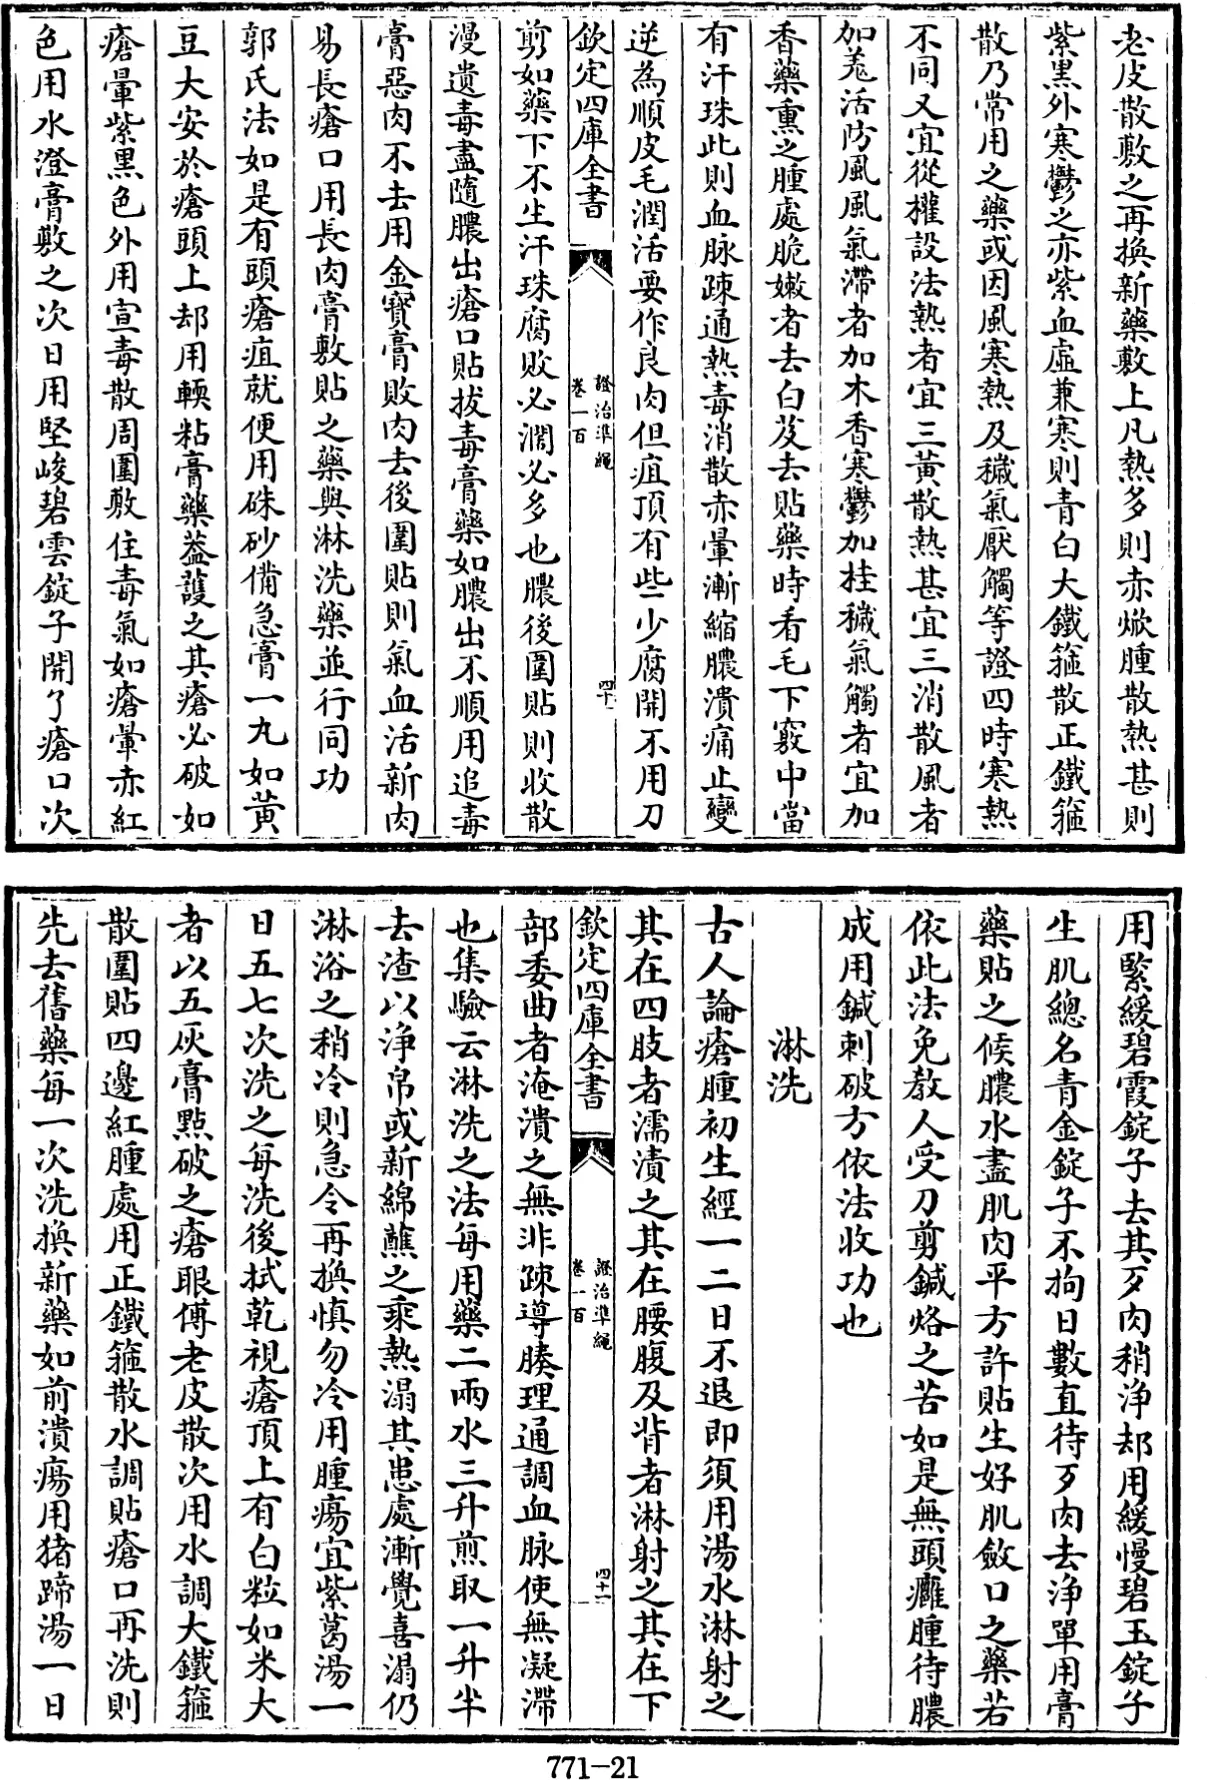 老皮散敷之再換新藥敷上凡熱多則赤焮腫散熱甚則
紫黑外寒鬱之亦紫血虛兼寒則青白大鐵箍散正鐵箍
散乃常用之藥或因風寒熱及穢氣厭觸等證四時寒熱
不同又宜從權設法熱者宜三黃散熱甚宜三消散風者
加羗活防風風氣滯者加木香寒鬱加桂穢氣觸者宜加
香藥熏之腫處脆嫩者去白芨去貼藥時看毛下竅中當
有汗珠此則血脉疎通熱毒消散赤暈漸縮膿潰痛止變
逆為順皮毛潤活要作良肉但疽頂有些少腐開不用刀
欽定四庫全書
證治準繩
卷一百
四十
剪如藥下不生汗珠腐敗必濶必多也膿後圍貼則收散
漫遺毒盡隨膿出瘡口貼拔毒膏藥如膿出不順用追毒
膏惡肉不去用金寶膏敗肉去後圍貼則氣血活新肉
易長瘡口用長肉膏敷貼之藥與淋洗藥並行同功
郭氏法如是有頭瘡疽就便用硃砂備急膏一丸如黃
豆大安於瘡頭上却用輭粘膏藥葢護之其瘡必破如
瘡暈紫黑色外用宣毒散周圍敷住毒氣如瘡暈赤紅
色用水澄膏敷之次日用堅峻碧雲錠子開了瘡口次
用緊緩碧霞錠子去其歹肉稍淨却用緩慢碧玉錠子
生肌總名青金錠子不拘日數直待歹肉去淨單用膏
藥貼之候膿水盡肌肉平方許貼生好肌斂口之藥若
依此法免教人受刀剪鍼烙之苦如是無頭癰腫待膿
成用鍼刺破方依法收功也
淋洗
古人論瘡腫初生經一二日不退即須用湯水淋射之
其在四肢者濡漬之其在腰腹及背者淋射之其在下
欽定四庫全書
證治準繩
卷一百
四十一
部委曲者淹漬之無非疎導腠理通調血脉使無凝滯
也集驗云淋洗之法每用藥二兩水三升煎取一升半
去渣以淨帛或新綿蘸之乘熱溻其患處漸覺喜溻仍
淋浴之稍冷則急令再換慎勿冷用腫瘍宜紫葛湯一
日五七次洗之每洗後拭乾視瘡頂上有白粒如米大
者以五灰膏點破之瘡眼傅老皮散次用水調大鐵箍
散圍貼四邊紅腫處用正鐵箍散水調貼瘡口再洗則
先去舊藥每一次洗換新藥如前潰瘍用猪蹄湯一日
771-21